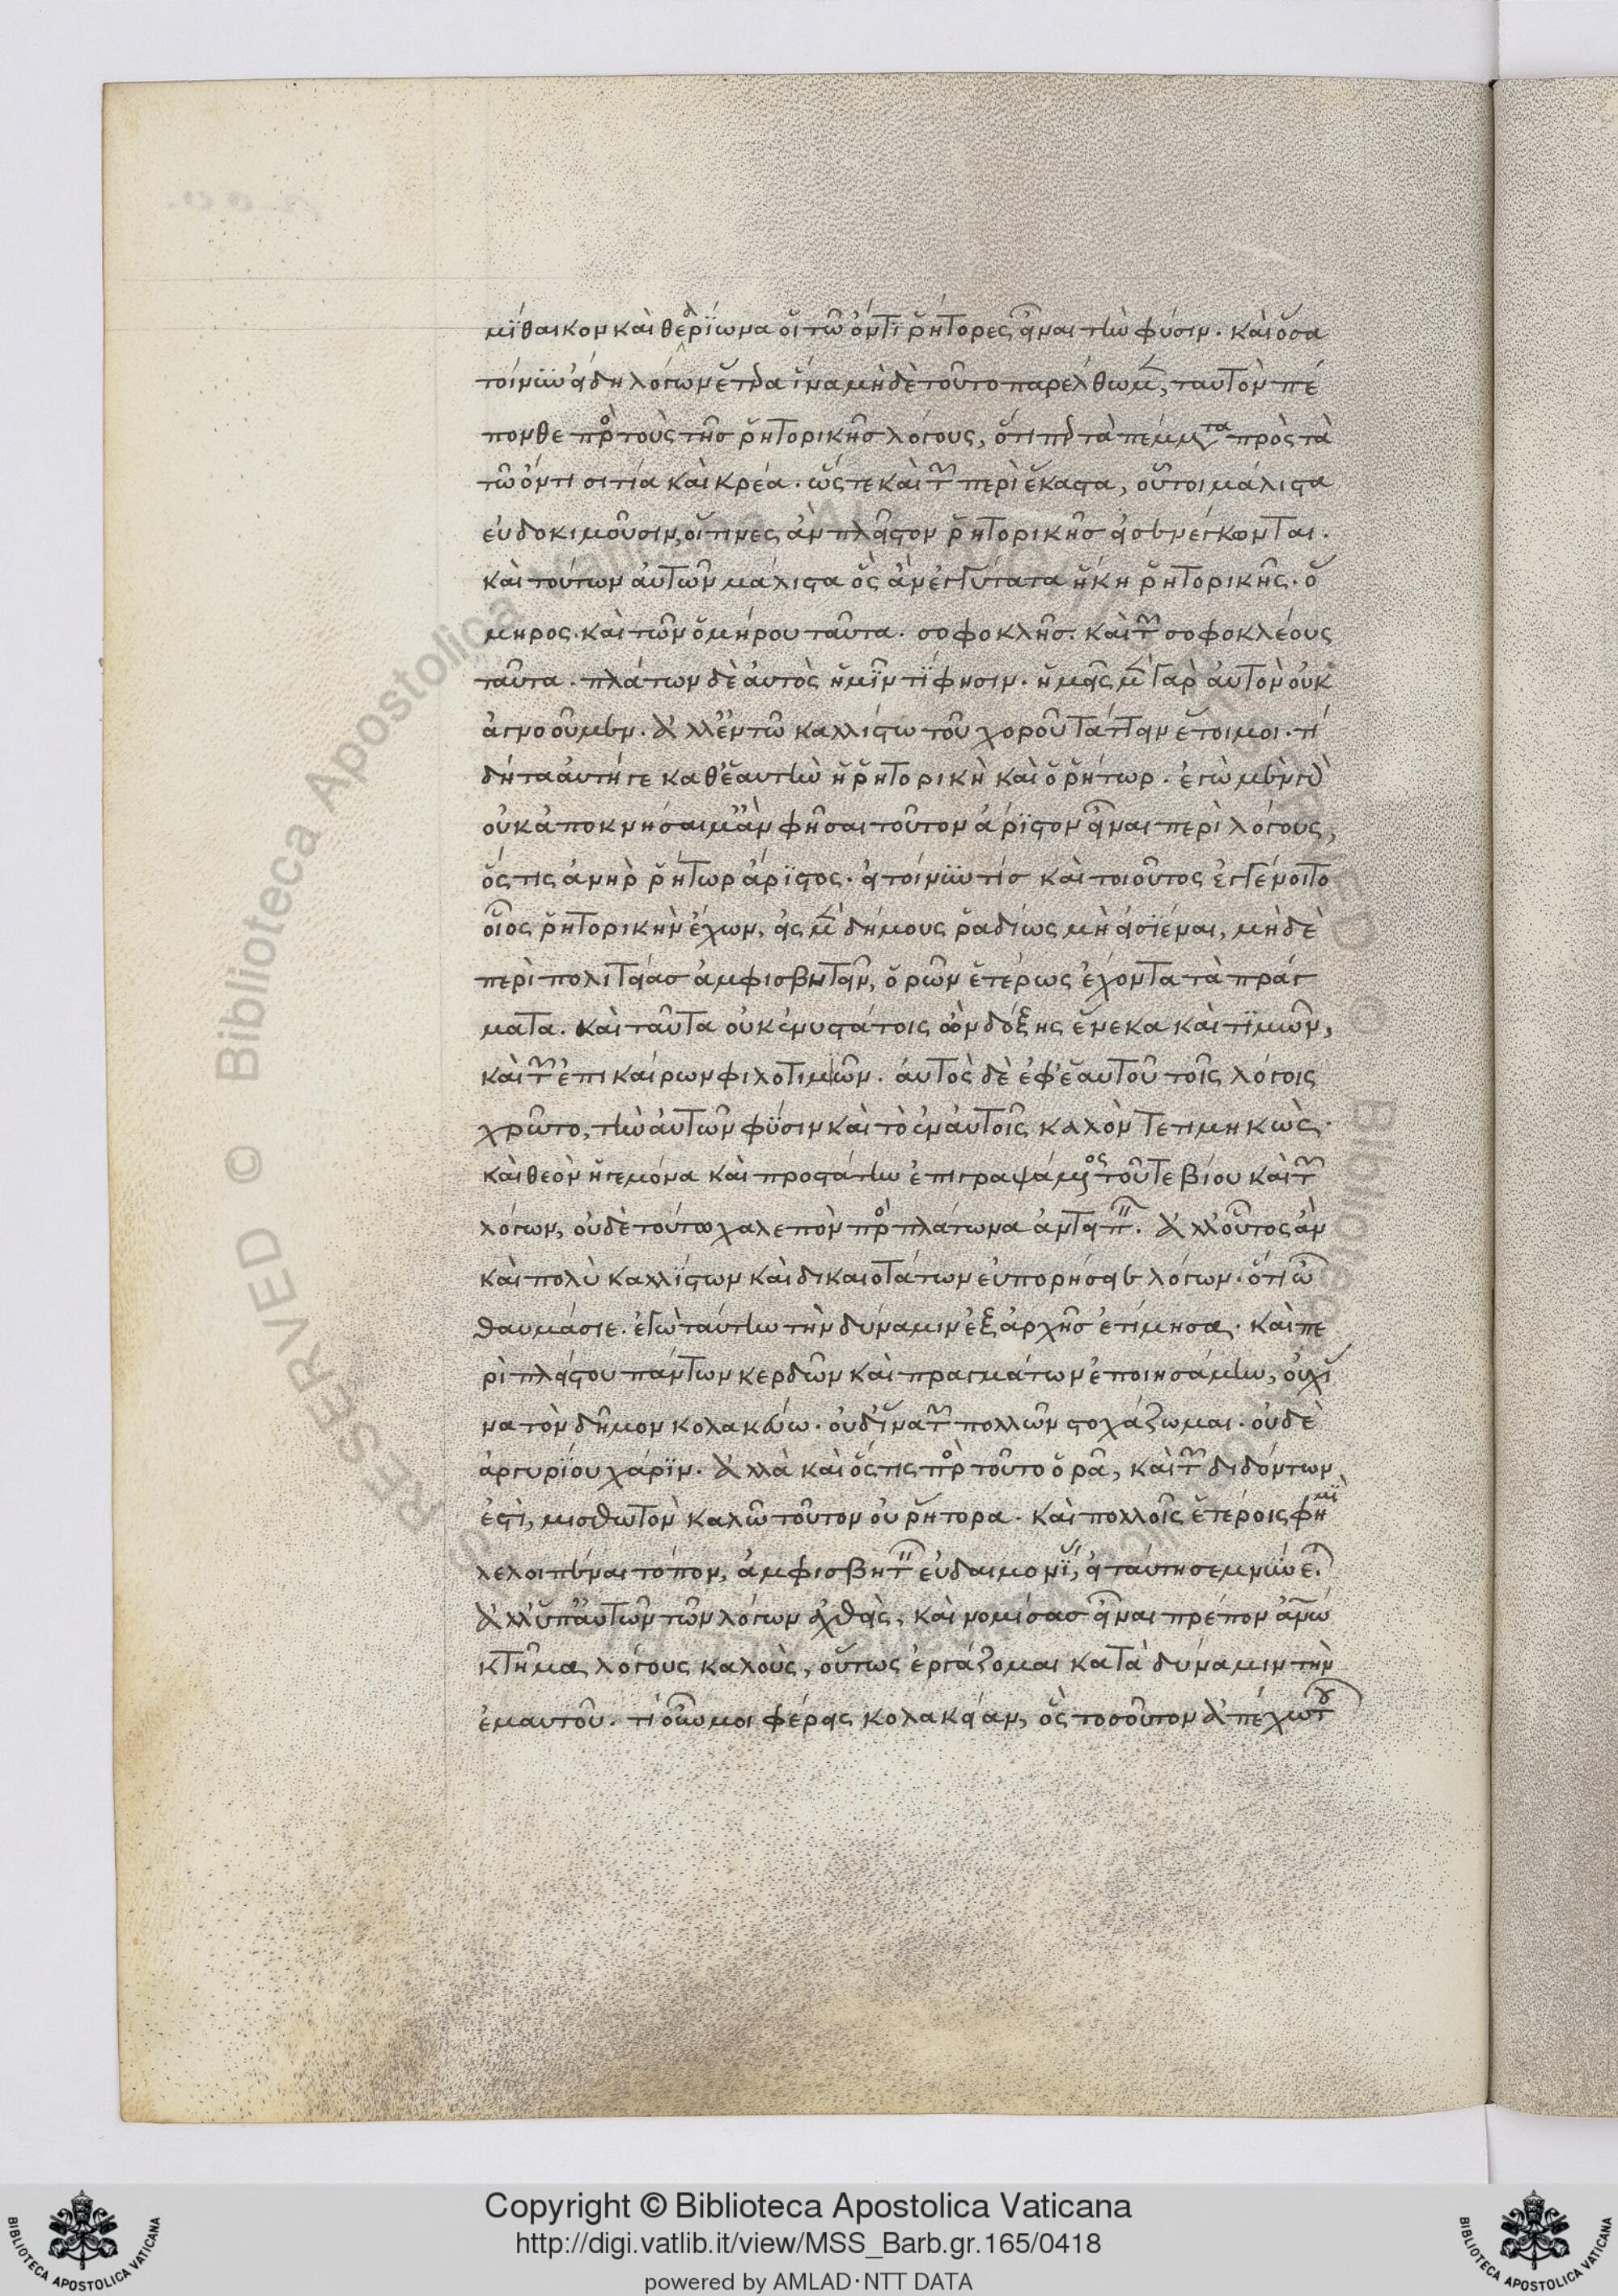 μίθαικον καὶ θεαρίωνα οἱ τῶ ὄντι ῥήτορες εἶναι τὴν φύσιν. καὶ ὅσα
τοίνυν εἴδη λόγων ἕτερα ἵνα μὴ δὲ τοῦτο παρέλθωμεν, ταυτὸν πέ
πονθε πρὸς τοὺς τῆς ῥητορικῆς λόγους, ὅτι περ τὰ πέμματα πρὸς τὰ
τῶ ὄντι σιτία καὶ κρέα. ὥς τε καὶ τῶν περὶ ἕκαστα, οὗτοι μάλιστα
εὐδοκιμοῦσιν, οἵτινες ἂν πλεῖστον ῥητορικῆς εἰσενέγκωνται.
καὶ τούτων αὐτῶν μάλιστα ὃς ἂν ἐγγύτατα ἥκη ῥητορικῆς. ὅ
μηρος. καὶ τῶν ὁμήρου ταῦτα. σοφοκλῆς. καὶ τῶν σοφοκλέους
ταῦτα. πλάτων δὲ αὐτὸς ἡμῖν τί φησιν. ἡμᾶς μὲν γὰρ αὐτὸν οὐκ
ἀγνοοῦμεν. ἀλλ' ἐν τῶ καλλίστω τοῦ χοροῦ τάττειν ἕτοιμοι. τί
δῆτα αὐτή γε καθ' ἑαυτὴν ἡ ῥητορικὴ καὶ ὁ ῥήτωρ. ἐγὼ μὲν γὰρ
οὐκ ἀποκνήσαιμ' ἂν φῆσαι τοῦτον ἄριστον εἶναι περὶ λόγους,
ὅς τις ἀνὴρ ῥήτωρ ἄριστος. εἰ τοίνυν τίς καὶ τοιοῦτος ἐγγένοιτο
οἷος ῥητορικὴν ἔχων, εἰς μὲν δήμους ῥαδίως μὴ εἰσιέναι, μὴ δὲ
περὶ πολιτείας ἀμφισβητεῖν, ὁρῶν ἑτέρως ἔχοντα τὰ πράγ
ματα. καὶ ταῦτα οὐκ ἐν ὑστάτοις ὢν δόξης ἕνεκα καὶ τιμῶν,
καὶ τῶν ἐπικαίρων φιλοτιμιῶν. αὐτὸς δὲ ἐφ' ἑαυτοῦ τοῖς λόγοις
χρῶτο, τὴν αὐτῶν φύσιν καὶ τὸ ἐν αὐτοῖς καλὸν τετιμηκὼς.
καὶ θεὸν ἡγεμόνα καὶ προστάτην ἐπιγραψάμενος τοῦ τε βίου καὶ τῶν
λόγων, οὐδὲ τούτω χαλεπὸν πρὸς πλάτωνα ἀντειπεῖν. ἀλλ' οὗτος ἂν
καὶ πολὺ καλλίστων καὶ δικαιοτάτων εὐπορήσειε λόγων. ὅτι ὦ
θαυμάσιε. ἐγὼ ταύτην τὴν δύναμιν ἐξ ἀρχῆς ἐτίμησα. καὶ πε
ρὶ πλείστου πάντων κερδῶν καὶ πραγμάτων ἐποιησάμην, οὐχ ἵ
να τὸν δῆμον κολακεύω. οὐδ' ἵνα τῶν πολλῶν στοχάζωμαι. οὐδὲ
ἀργυρίου χάριν. ἀλλὰ καὶ ὅς τις πρὸς τοῦτο ὁρᾶ, καὶ τῶν διδόντων
ἐστὶ, μισθωτὸν καλῶ τοῦτον οὐ ῥήτορα. καὶ πολλοῖς ἑτέροις φημὶ
λελοιπέναι τόπον, ἀμφισβητεῖν εὐδαιμονίας, εἰ ταύτη σεμνύνεται.
ἀλλ' ὑπ' αὐτῶν τῶν λόγων ἀχθεὶς, καὶ νομίσας εἶναι πρέπον ἀνθρώπω
κτῆμα λόγους καλοὺς, οὕτως ἐργάζομαι κατὰ δύναμιν τὴν
ἐμαυτοῦ. τί οὖν μοι φέρεις κολακείαν, ὃς τοσοῦτον ἀπέχω τοῦ